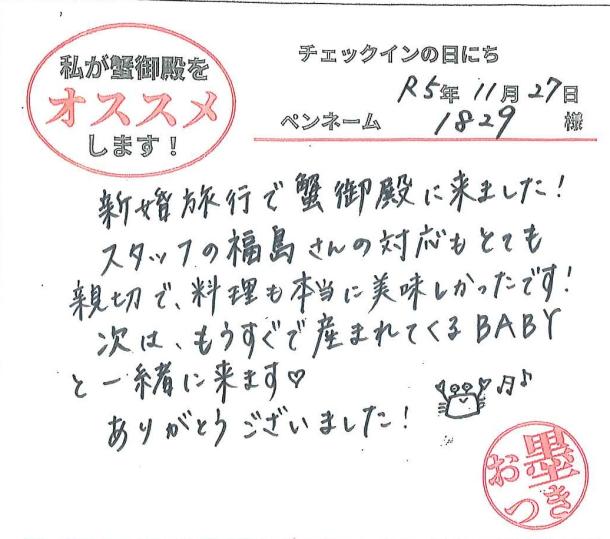 私が蟹御殿を
オススメ
します!
チェックインの日にち
R5年 11月 27日
ペンネーム 1829 様
新婚旅行で蟹御殿に来ました!
スタッフの福島さんの対応もとても
親切で、料理も本当に美味しかったです!
次は、もうすぐで産まれてくるBABY
と一緒に来ます♡
ありがとうございました!
お墨
つき